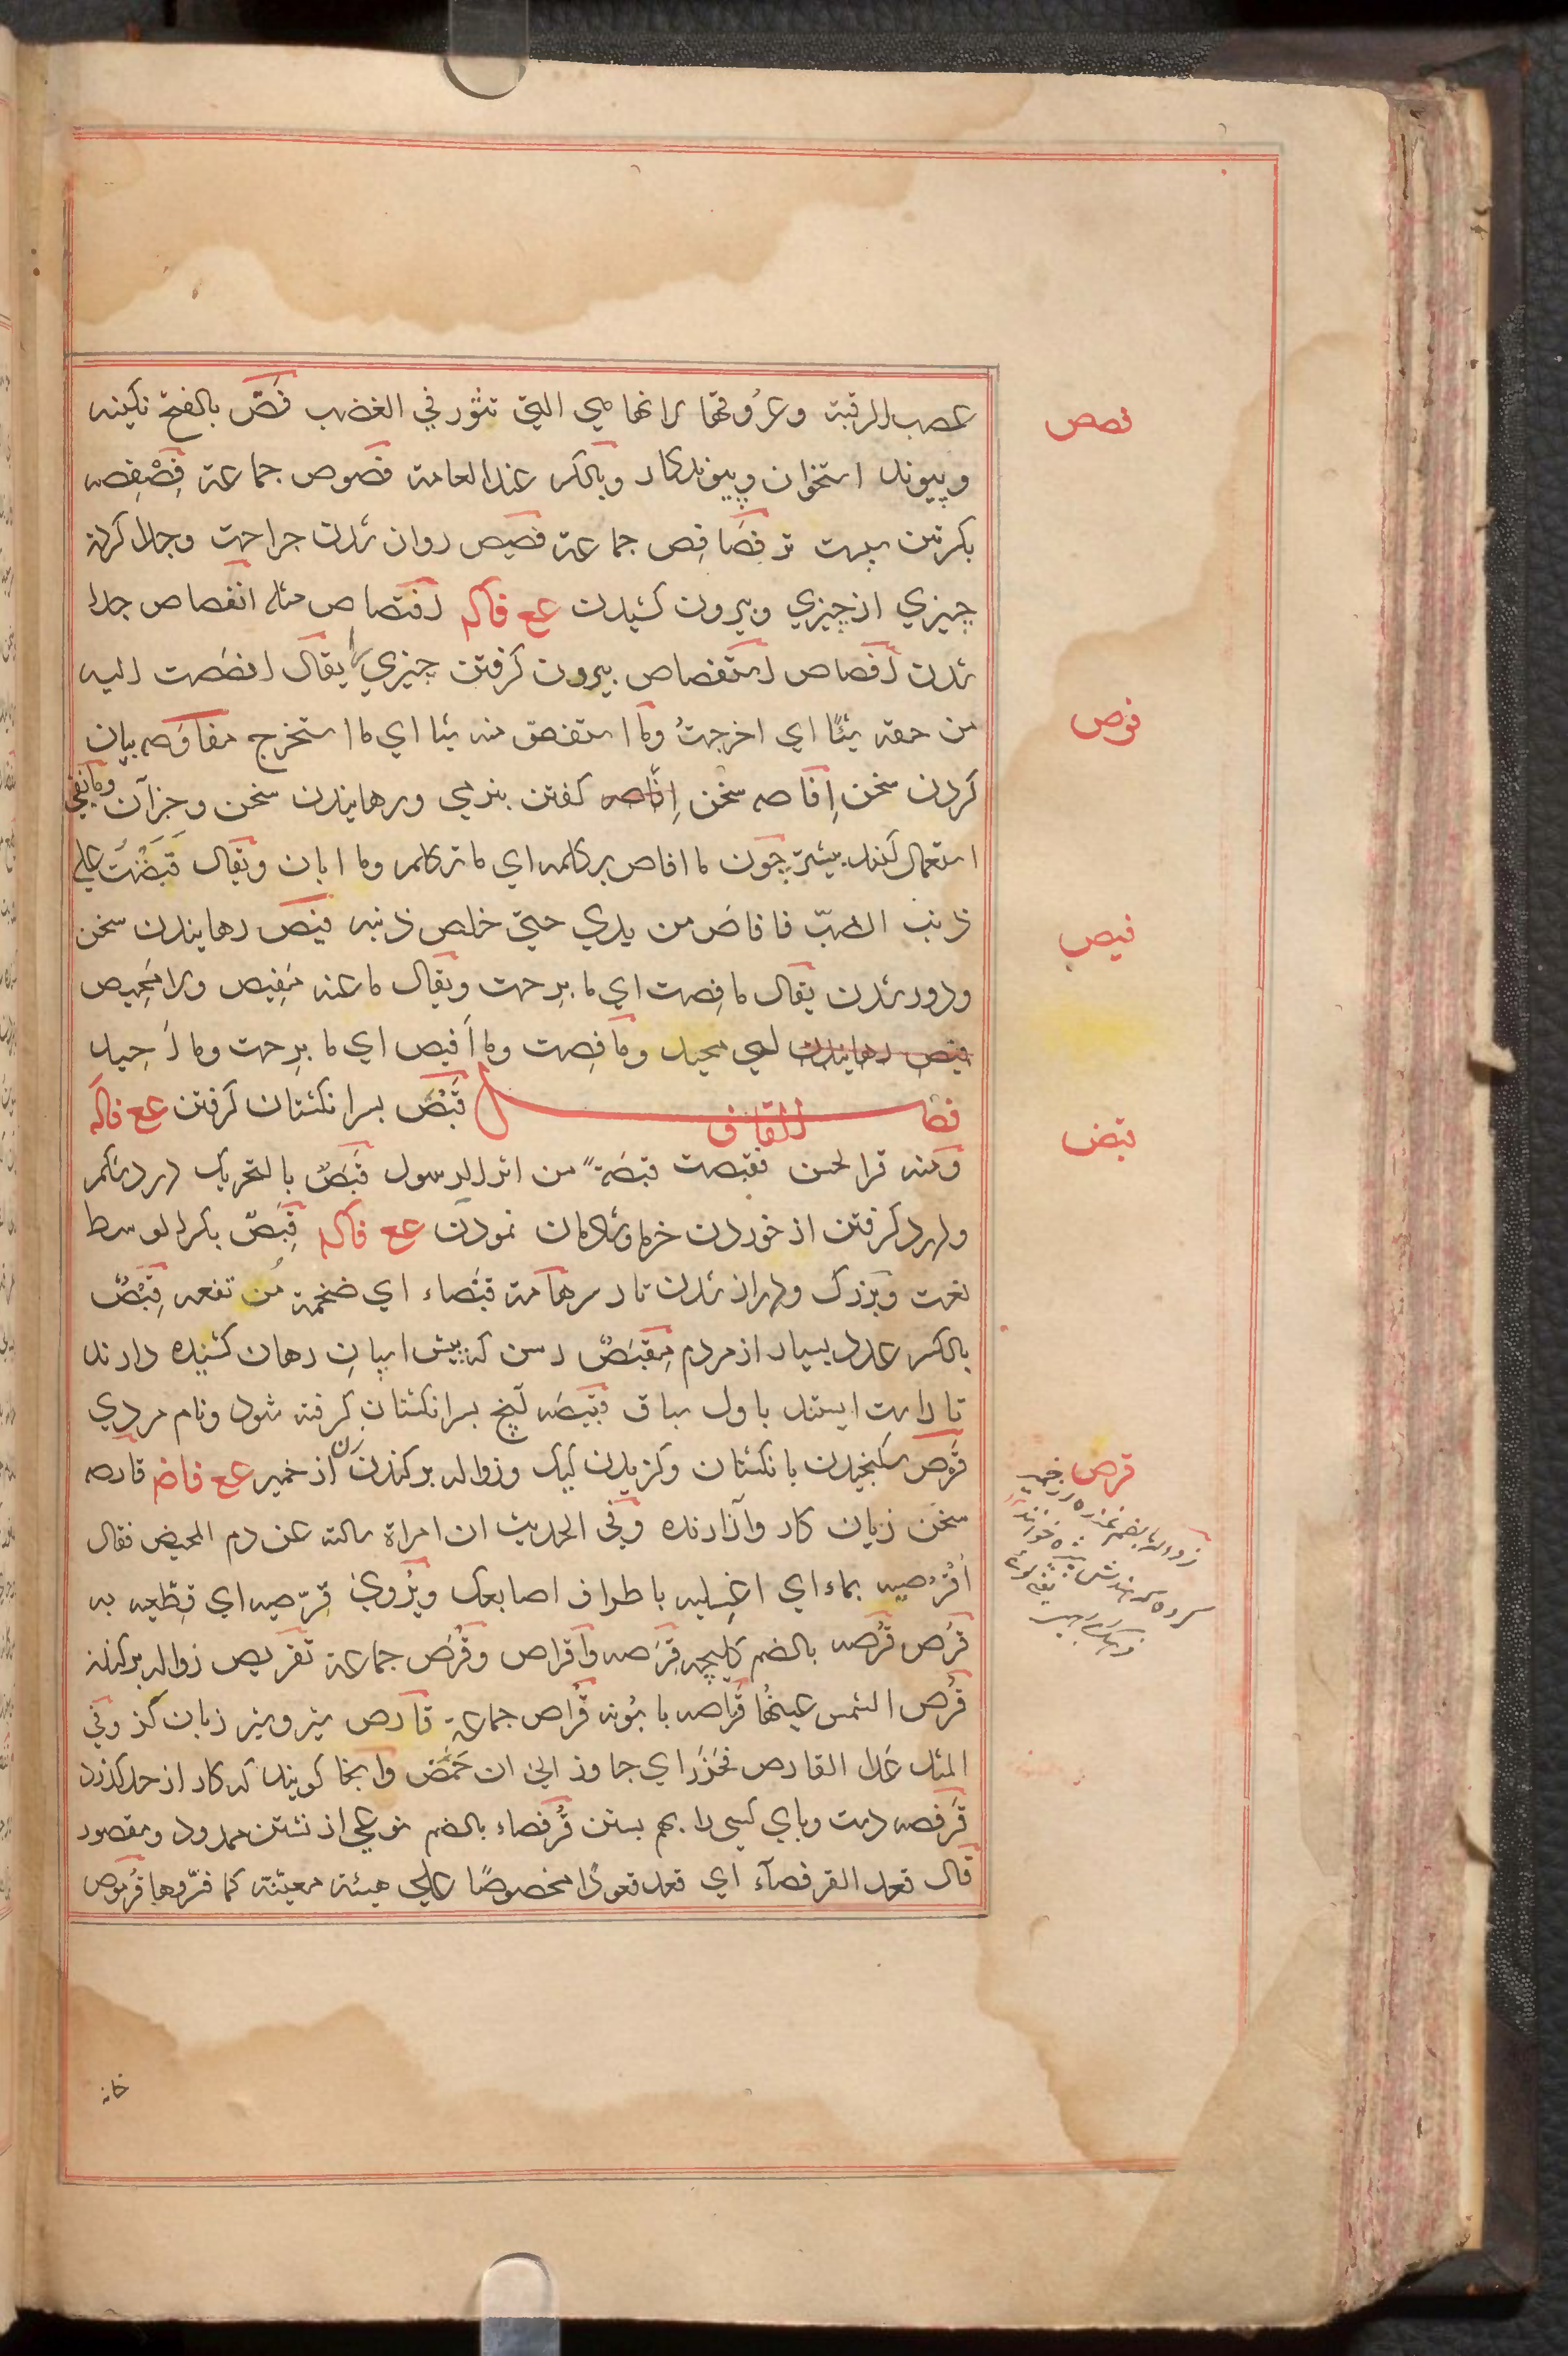 عصب الرقبة وعُروقها لانها هي التي تثور في الغضب فَصّ بالفتح نكينه
فصص
و پيوند استخوان و پيوند كار وبالكسر عند العامة فصوص جماعة فِصْفِصه
بكسرتين سبست تر فَصَافِص جماعة فصيص روان شدن جراحت وجدا كردن
چيزي از چيزي وبيرون كشيدن عع فاكه افتصاص مثله انفصاص جدا
شدن افصاص استفصاص بيرون كرفتن چيزي را يقال افصصت اليه
من حقه شيئًا اي اخرجتُ وما استفصّ منه شيئا اي ما استخرج مفاوَصه بيان
فوص
كردن سخن اِفاصه سخن كفتن بتردي ورهانيدن سخن وجز آن وما نفي
استعمال كنند بيشتر چون ما افاص بكلمه اي ما تركلم وما ابان ويقال قَبَضْتَ علي
ذنب الضبّ فافاصَ من يدي حتي خلص ذنبه فيص رهانيدن سخن
فيص
ودور شدن يقال ما فِصت اي ما برِحت ويقال ما عنه مَفيص ولا مَحِيص
فيص رهانيدن اي محيد وما فِصت وما اَفيص اي ما برِحت وما اَحِيد
فصل القاف قَبْصٌ بسر انكشتان كرفتن عع فاكه
قبص
ومنه قرا الحسن فقبصت قبصَةً من اثر الرسول قَبَصٌ بالتحريك درد شكم
ودرد كرفتن از خوردن خرما وشادمان نمودن عع فاكه قَبِصٌ بكسر الوسط
لغت وبزرك ودراز شدن تارك سر هامة قبصاء اي ضخمة مرتفعه قِبْصٌ
بالكسر عدد بسيار از مردم مِقبَصٌ رسن كه پيش اسپانِ رهان كشيده دارند
تا راست ايستند باول سباق قبيصَه آنچ بسر انكشتان كرفته شود ونام مردي
قَرص سكنجيدن بانكشتان وكزيدن كيك وزواله بر كندن از خمير عع فاضم قارصه
قرص
سخن زيان كار وآزارنده وفي الحديث ان امراة سالته عن دم المحيض فقال
اُقْرُصِيه بماء اي اغسِليه باطراف اصابعك ويُروي قرّصيه اي قطّعيه به
قُرص قُرصه بالضم كليچه قِرَصه واقراص وقُرَص جماعة تقريص زواله بركندن
قُرص الشمس عينُها قُرّاصه بابُونه قُرّاص جماعة قارص شير وپنير زبان كز وفي
المثل عَدا القارص فحَزَر اي جاوز الي ان حَمُض وانجا كويند كه كار از حد كذرد
قَرفصه دست وپاي كسي را بهم بستن قُرفصاء بالضم نوعي از نشستن ممدود ومقصور
قال قعد القرفصآء اي قعد قعودًا مخصوصًا علي هيئة معيّنة كما فسّروها قُرموص
خانه